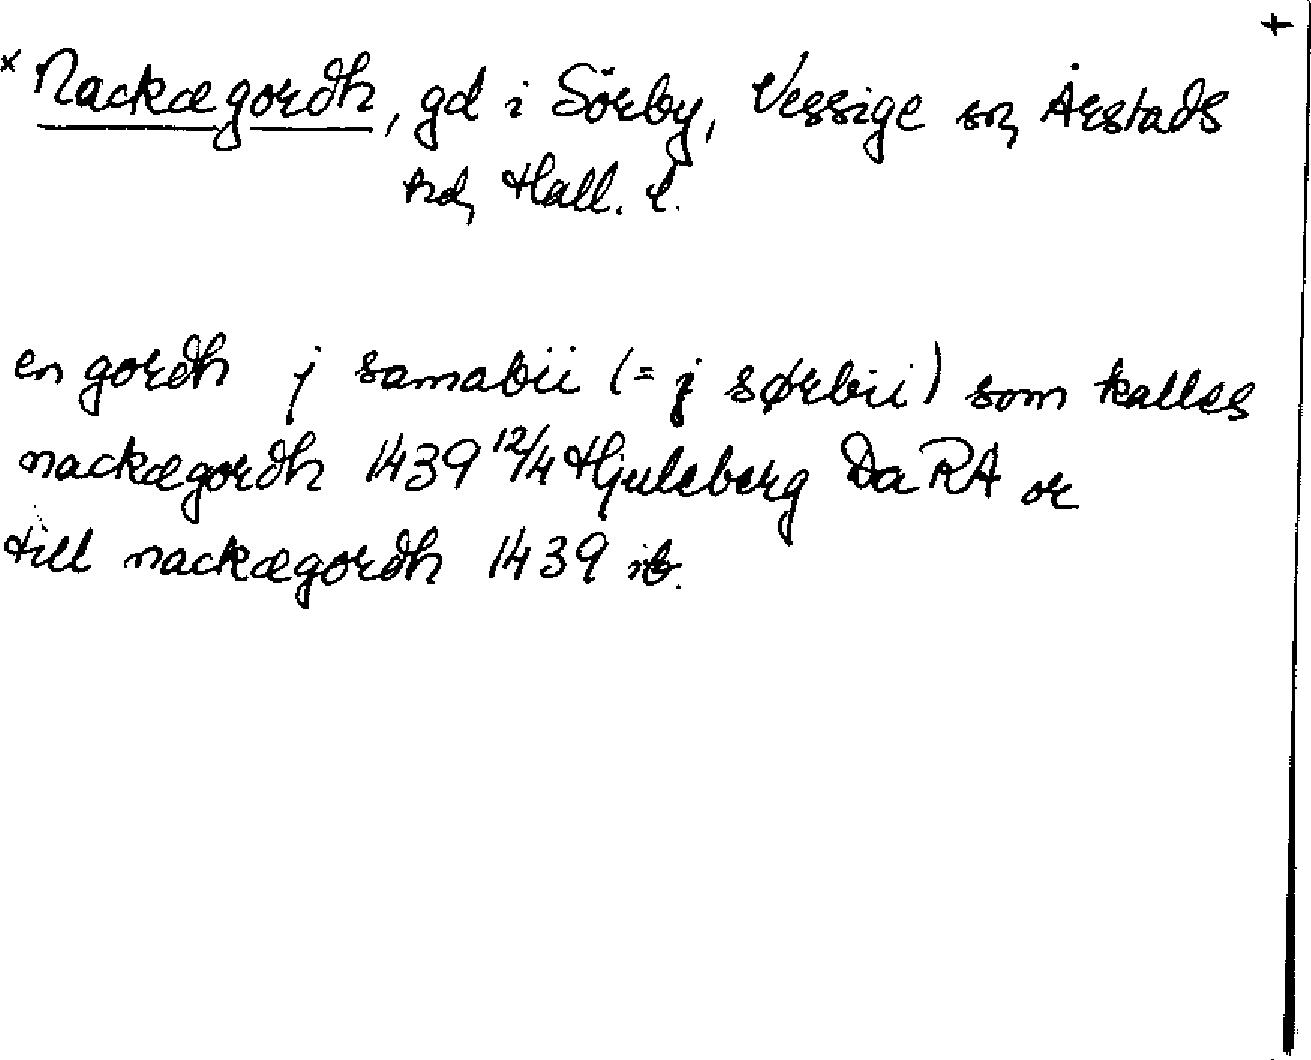 +
× Nackægordh, gd i Sörby, Vessige sn, Årstads
hd, Hall. l.
en gordh j samabii (= j sørbii) som kalles
nackægordh 1439 12/4 Hjuleberg DaRA or
till nackægordh 1439 ib.